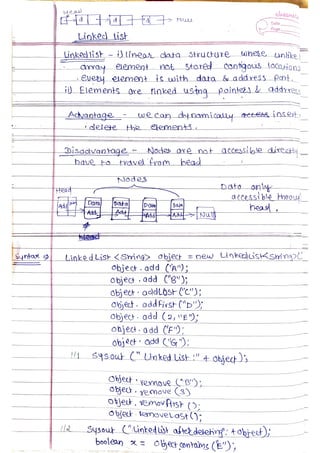 Head
d d d → Null
Date
Page
Linked list
Linked list - i) linear data structure whose unlike
array element not stored contigous locations
every element is with data & address part.
ii) Elements are linked using pointers & address
Advantage - we can dynamically insert.
delete the elements.
Disadvantage - Nodes are not accessible directly
have to travel from head
Nodes
Head
Data only
accessible throu
head.
Add Data Data Data Null
Add Add
Syntax ⇒ LinkedList <String> object = new LinkedList<String>(
object.add ("A");
object.add ("B");
object.addLast ("C");
object.addFirst ("D");
object.add (2, "E");
object.add ("F");
object.add ("G");
//1 Sysout ("Linked List :" + object);
object.remove ("B");
object.remove (3)
object.removFirst ();
object removeLast ();
//2 Sysout ("Linked list after deleting: + object);
boolean x = object contains ("E");